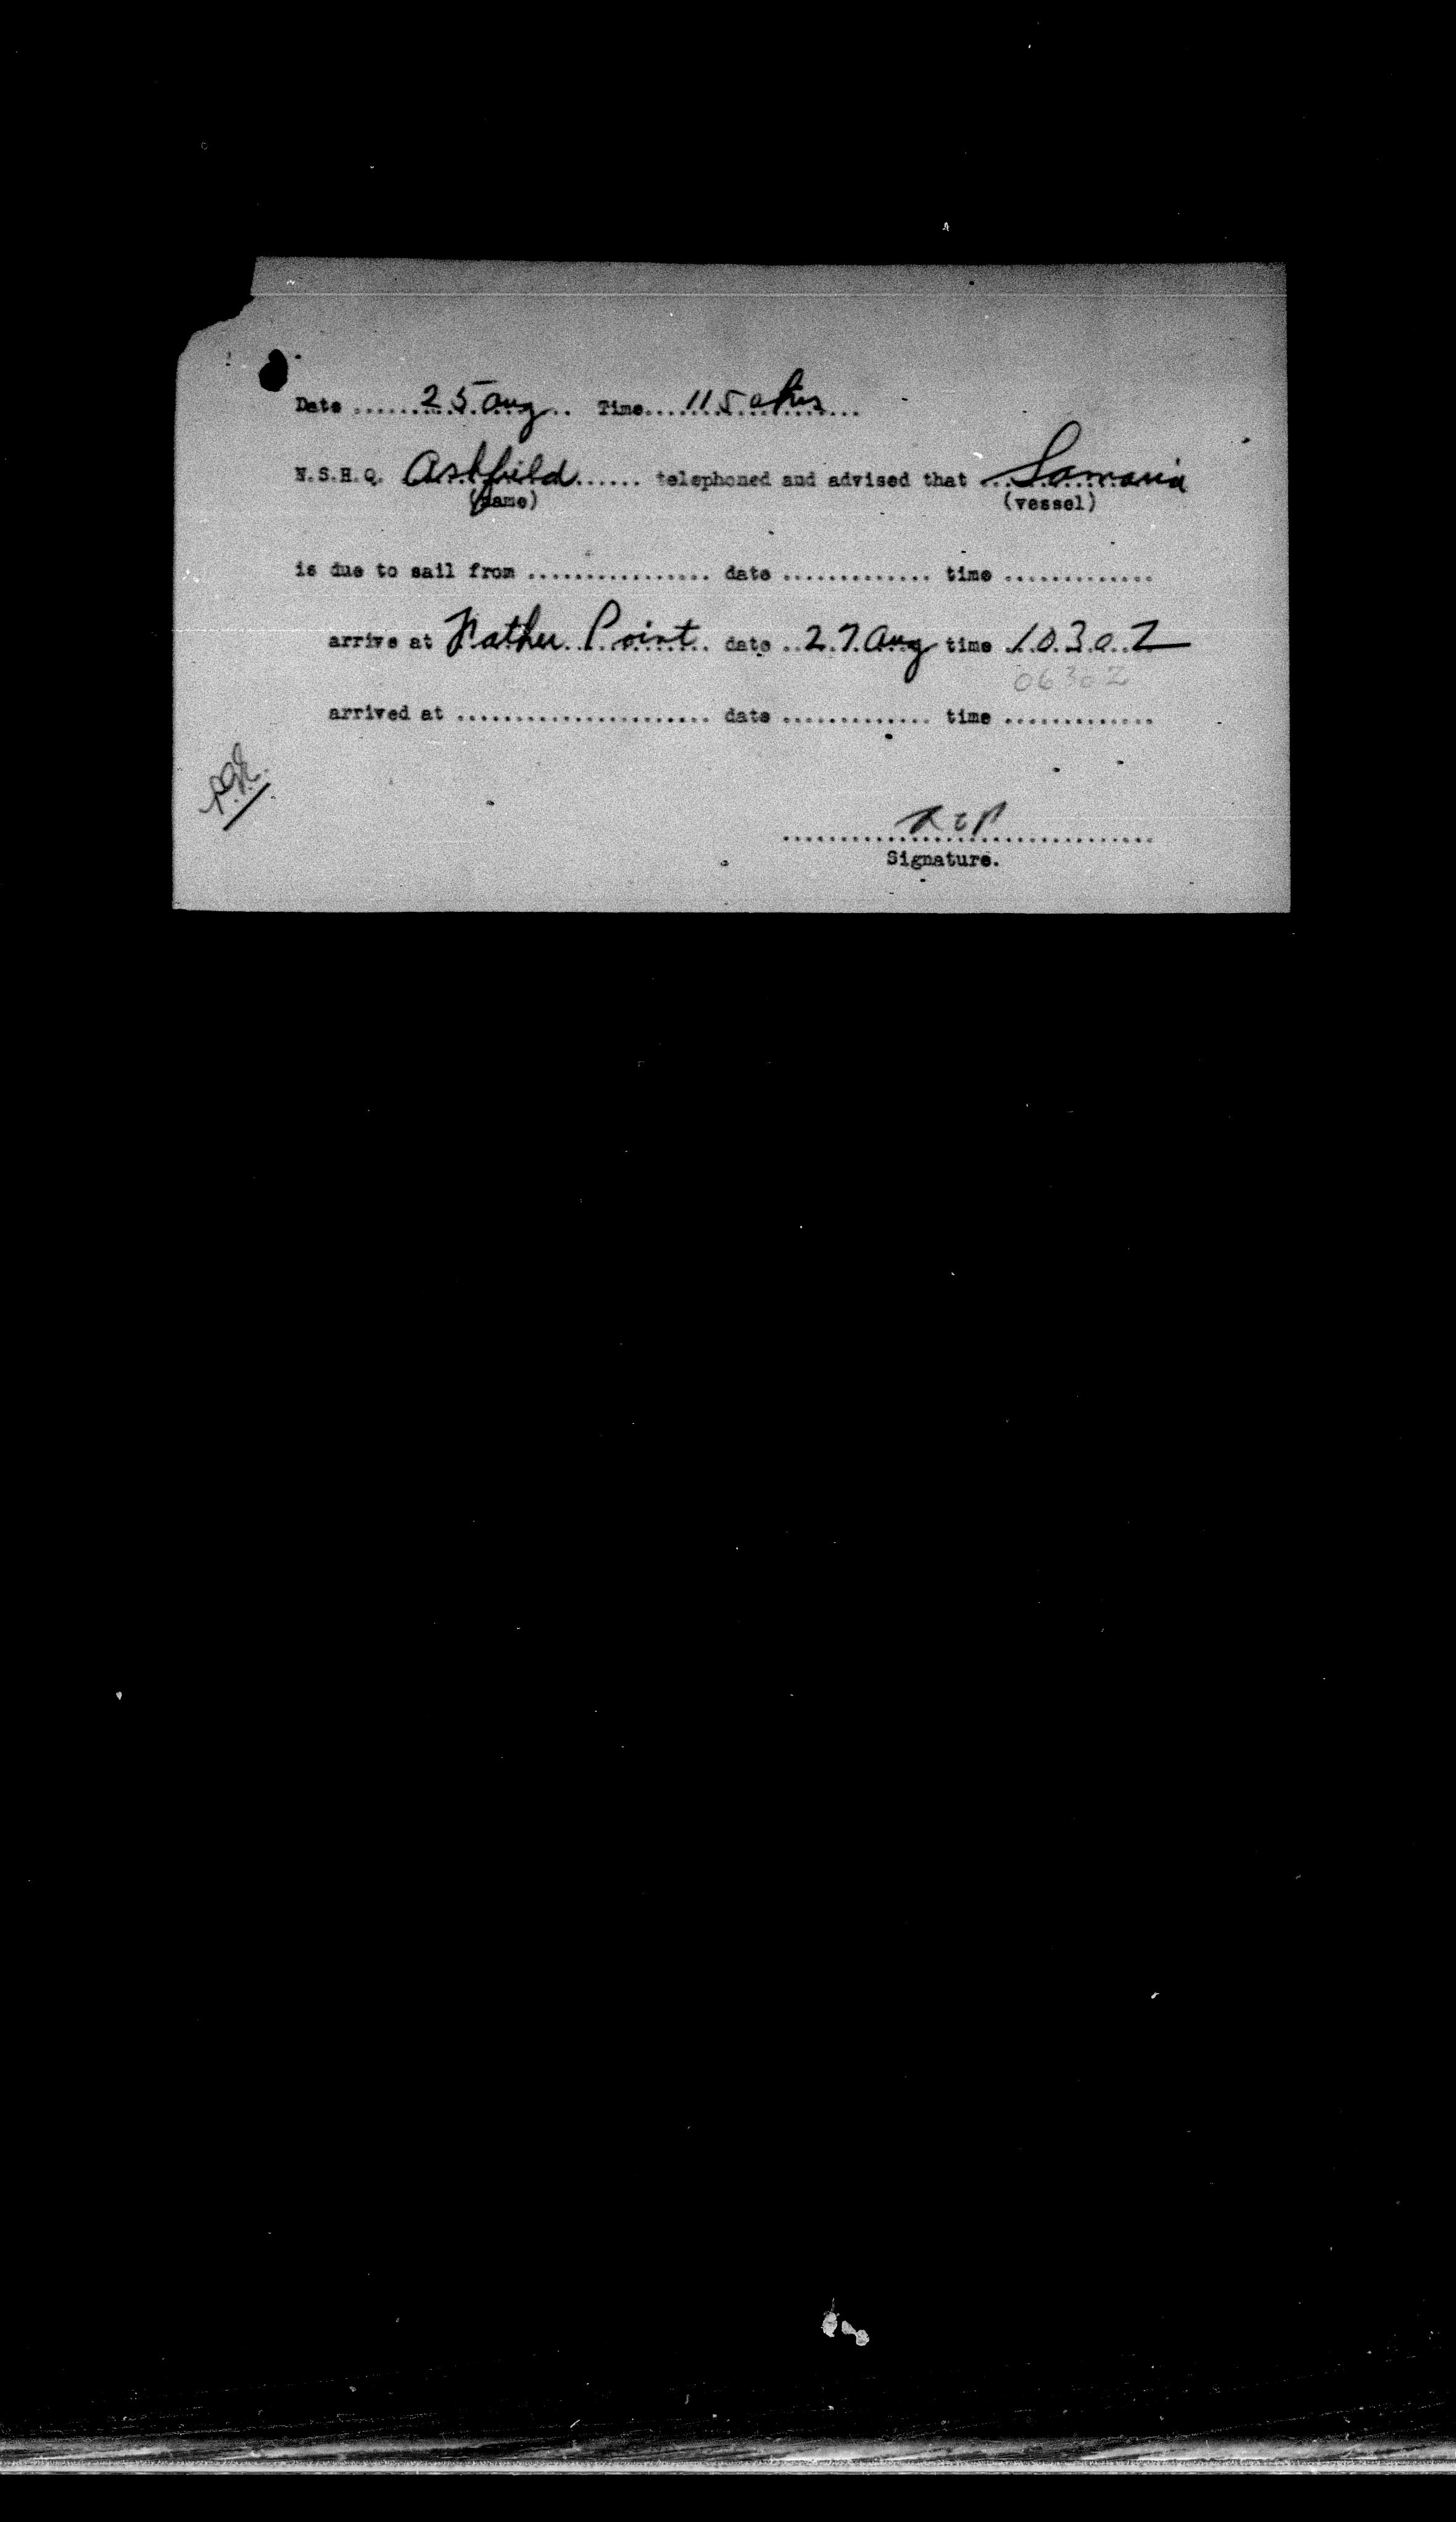 Date ........ 25 Aug .. Time.... 1150 hrs ...
N.S.H.Q. Ashfield ...... telephoned and advised that .. Samaria
(name) (vessel)
is due to sail from ................ date ............. time .............
arrive at Father Point .. date .. 27 Aug time 1030 Z
0630 Z
arrived at ...................... date ............. time .............
Signature.